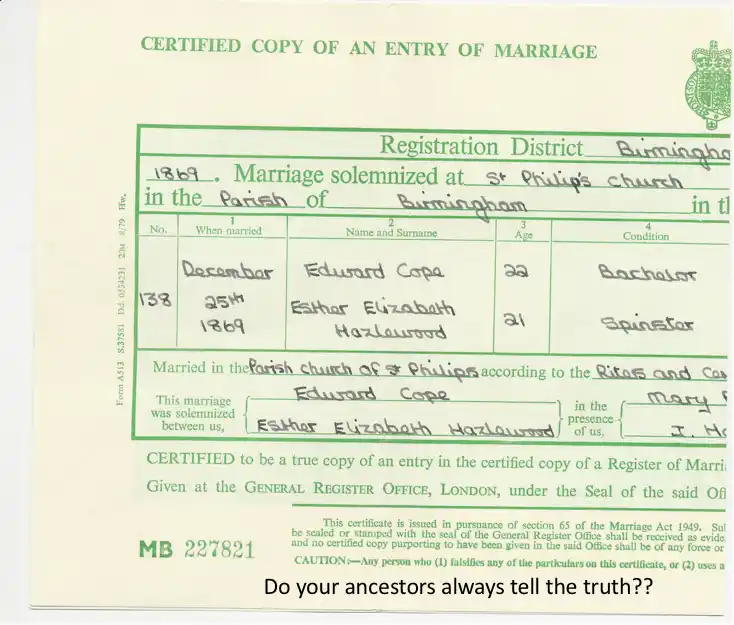 CERTIFIED COPY OF AN ENTRY OF MARRIAGE
Registration District Birmingha
1869. Marriage solemnized at St Philip's Church
in the Parish of Birmingham in th
No. 1 When married 2 Name and Surname 3 Age 4 Condition
December Edward Cope 22 Bachelor
138 25th Esther Elizabeth 21 Spinster
1869 Hazlewood
Married in the Parish church of St Philips according to the Rites and Cer
This marriage was solemnized between us, Edward Cope in the presence of us, Mary
Esther Elizabeth Hazlewood J. H
CERTIFIED to be a true copy of an entry in the certified copy of a Register of Marri
Given at the GENERAL REGISTER OFFICE, LONDON, under the Seal of the said Off
This certificate is issued in pursuance of section 65 of the Marriage Act 1949. Su
be sealed or stamped with the seal of the General Register Office shall be received as evide
and no certified copy purporting to have been given in the said Office shall be of any force or
MB 227821
CAUTION:—Any person who (1) falsifies any of the particulars on this certificate, or (2) uses a
Form A513 S.37581 Dd. 0534231 8/79 Hw.
Do your ancestors always tell the truth??